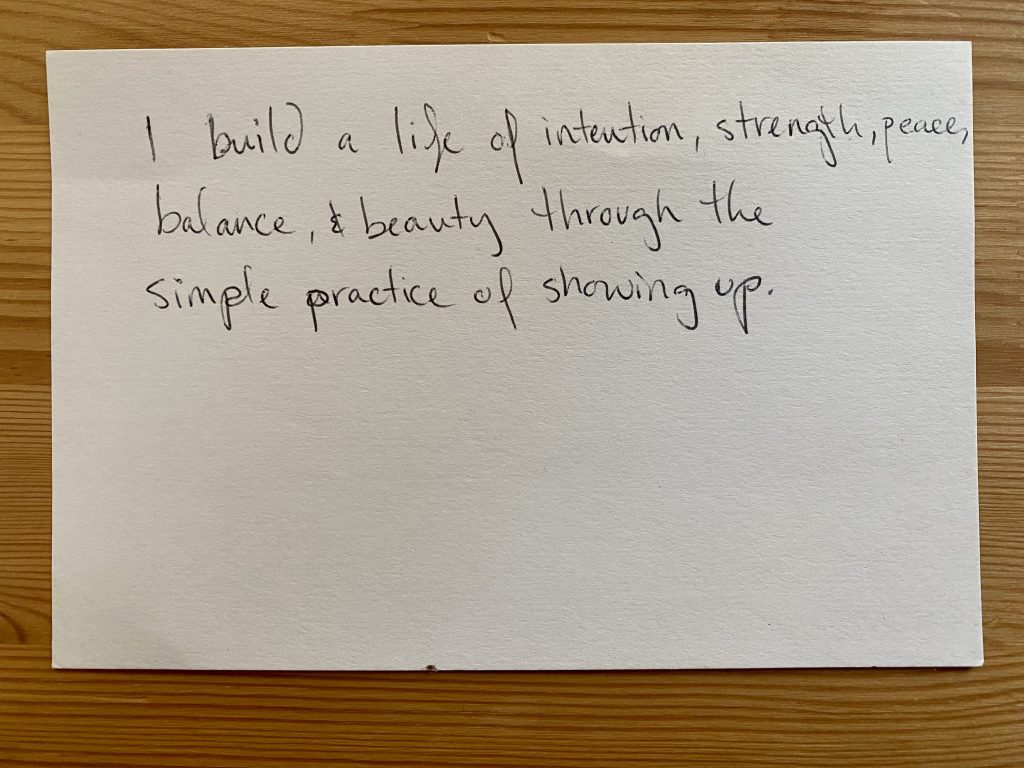 I build a life of intention, strength, peace,
balance, & beauty through the
simple practice of showing up.